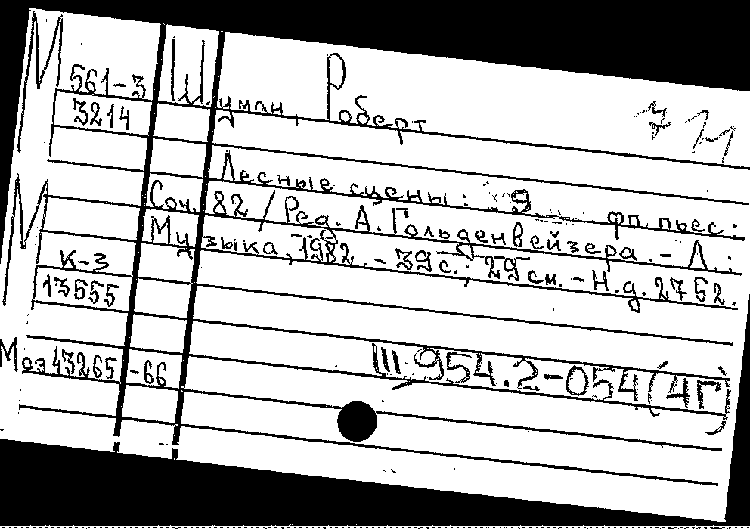 М 561-3 Шуман, Роберт
3214
Лесные сцены: 9 фп. пьес:
Соч. 82 / Ред. А. Гольденвейзера. - Л.:
М Музыка, 1982. - 39 с.; 29 см. - Н.д. 2762.
К-3
13555
Моз 13265-66
Ш 954.2-054(4Г)